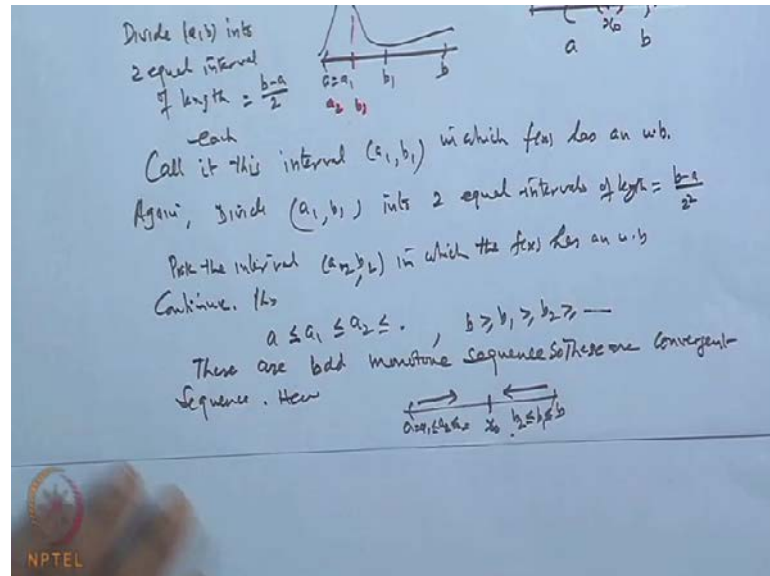 Divide (a,b) into
2 equal interval
of length = b-a/2
each
a=a₁ b₁ b
a₂ b₂
x₀
a b
Call it this interval (a₁,b₁) in which f(x) has an u.b.
Again, Divide (a₁,b₁) into 2 equal intervals of length = b-a/2²
Pick the interval (a₂,b₂) in which the f(x) has an u.b
Continue. this
a ≤ a₁ ≤ a₂ ≤ . , b ≥, b₁ ≥, b₂ ≥, —
These are bdd monotone sequence So These are convergent
Sequence. Hen
a=a₁≤a₂≤a= x₀ b₂≤b₁≤b
NPTEL